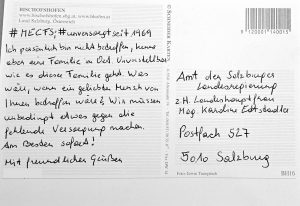 BISCHOFSHOFEN
www.bischofshofen.sbg.at, www.bhofen.at
Land Salzburg, Österreich
#MECFS; #unversorgt seit 1969
Ich persönlich bin nicht betroffen, kenne
aber eine Familie in Unvorstellbar
wie es dieser Familie geht. Was
wäre, wenn ein geliebter Mensch von
Ihnen betroffen wäre? Wir müssen
unbedingt etwas gegen die
fehlende Versorgung machen.
Am Besten sofort!
Mit freundlichen Grüßen
9120001140015
Amt der Salzburger
Landesregierung
z.H. Landeshauptfrau
Mag. Karoline Edtstadler
Postfach 527
5010 Salzburg
BH16